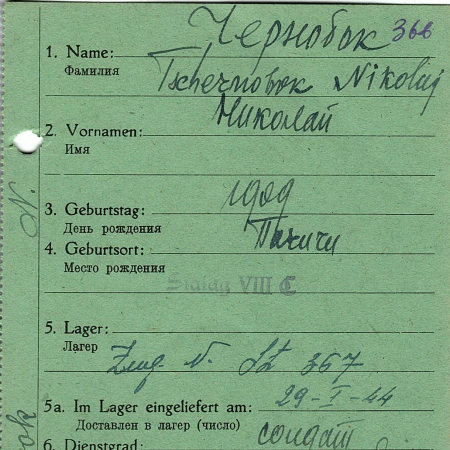 Чернобок 366
1. Name: Tschernobok Nikolaj
Фамилия
Николай
2. Vornamen:
Имя
1909
3. Geburtstag:
День рождения
4. Geburtsort:
Место рождения
Stalag VIII C
5. Lager:
Лагер
Zug. N. 367
5a. Im Lager eingeliefert am: 29-I-44
Доставлен в лагер (число)
солдат
6. Dienstgrad: